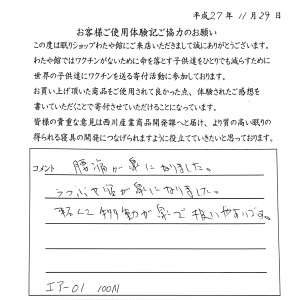 平成27年11月29日
お客様ご使用体験記ご協力のお願い
この度は眠りショップわたや館にご来店いただきまして誠にありがとうございます。
わたや館ではワクチンがないために命を落とす子供達をひとりでも減らすために
世界の子供達にワクチンを送る寄付活動に参加しております。
お買い上げ頂いた商品をご使用されて良かった点、体験されたご感想を
書いていただくことで寄付させていただけることになっています。
皆様の貴重な意見は西川産業商品開発課へと届け、より質の高い眠りの
得られる寝具の開発につなげられますように役立てていきたいと思っております。
コメント 腰痛が楽になりました。
うつぶせ寝が楽になりました。
軽くて移動が楽で扱いやすいです。
エアー01 100N